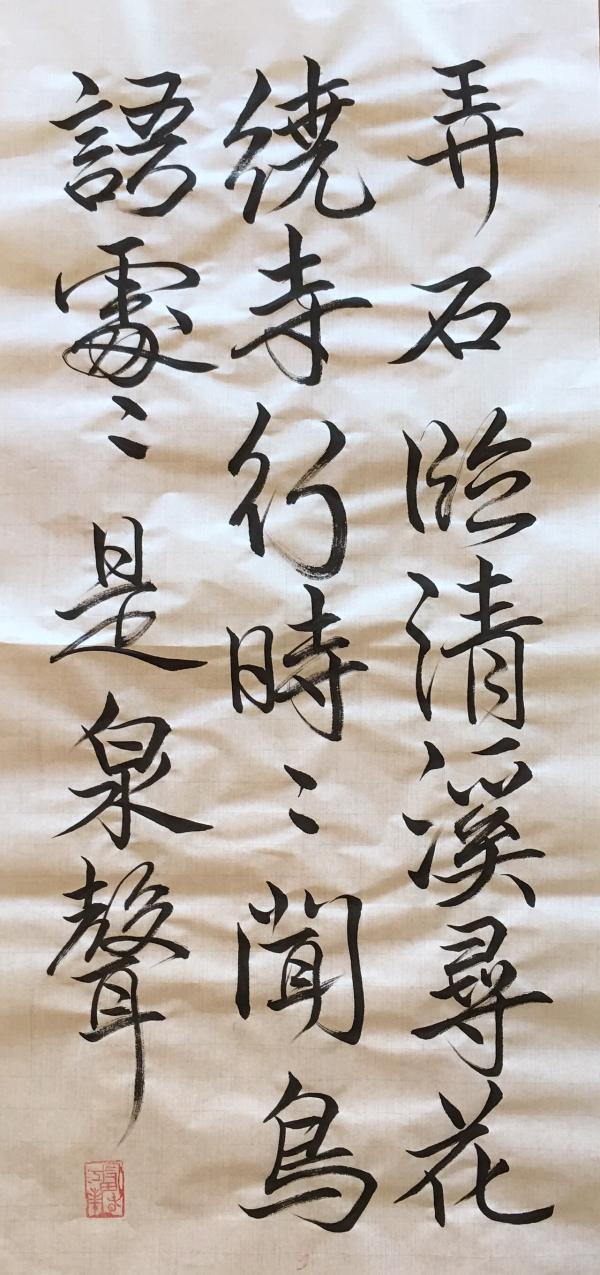 弄石臨清溪尋花
繞寺行時〻聞鳥
語處〻是泉聲